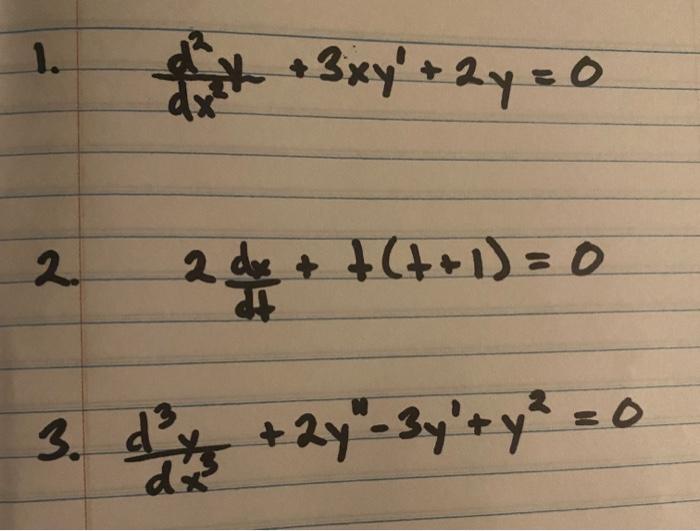 1. d²y/dx² + 3xy' + 2y = 0
2. 2 dx/dt + t(t+1) = 0
3. d³y/dx³ + 2y" - 3y' + y² = 0